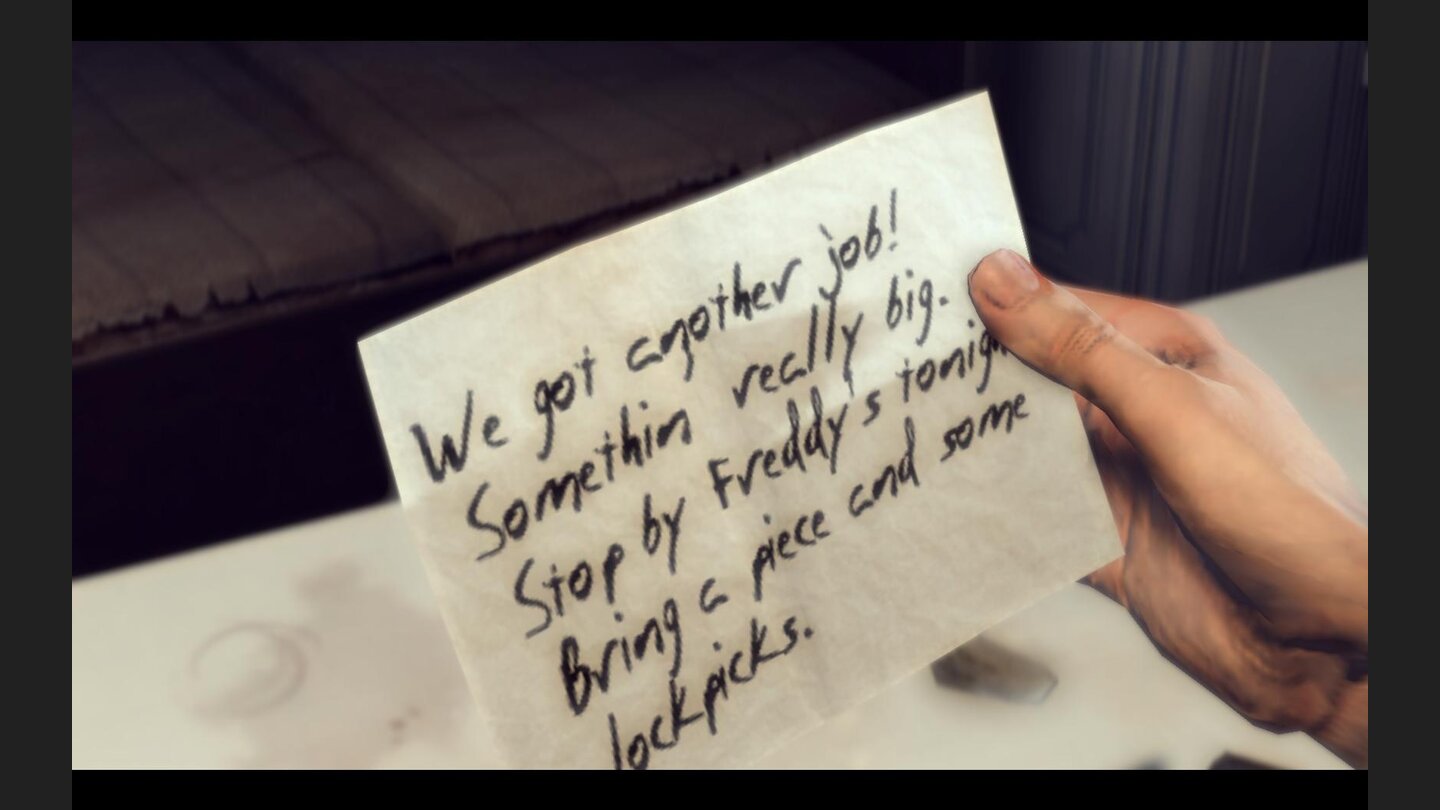 We got another job!
Somethin really big.
Stop by Freddy's
Bring a piece and some
lockpicks.